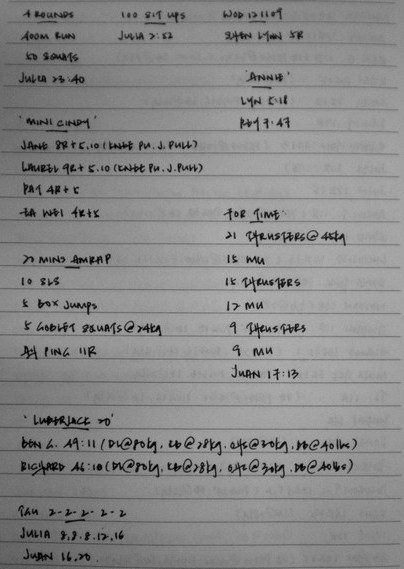 4 ROUNDS
400M RUN
50 SQUATS
JULIA 23:40
100 SIT UPS
JULIA 2:52
WOD 121109
SHEN LYNN 5R
'ANNIE'
LYN 5:18
REY 7:47
'MINI CINDY'
JANE 8R+5.10 (KNEE PU. J.PULL)
LAUREL 9R+5.10 (KNEE PU. J.PULL)
PAT 4R+5
EA WEI 4R+5
FOR TIME:
21 THRUSTERS @ 45kg
15 MU
15 THRUSTERS
12 MU
9 THRUSTERS
9 MU
JUAN 17:13
22 MINS AMRAP
10 SLS
5 BOX JUMPS
5 GOBLET SQUATS @ 24kg
AH PING 11R
'LUBERJACK 20'
BEN G. 49:11 (DL@80kg, KB@28kg, OHS@30kg, DB@40lbs)
RICHARD 46:10 (DL@80kg, KB@28kg, OHS@30kg, DB@40lbs)
TGU 2-2-2-2-2
JULIA 8.8.8.12.16
JUAN 16.20